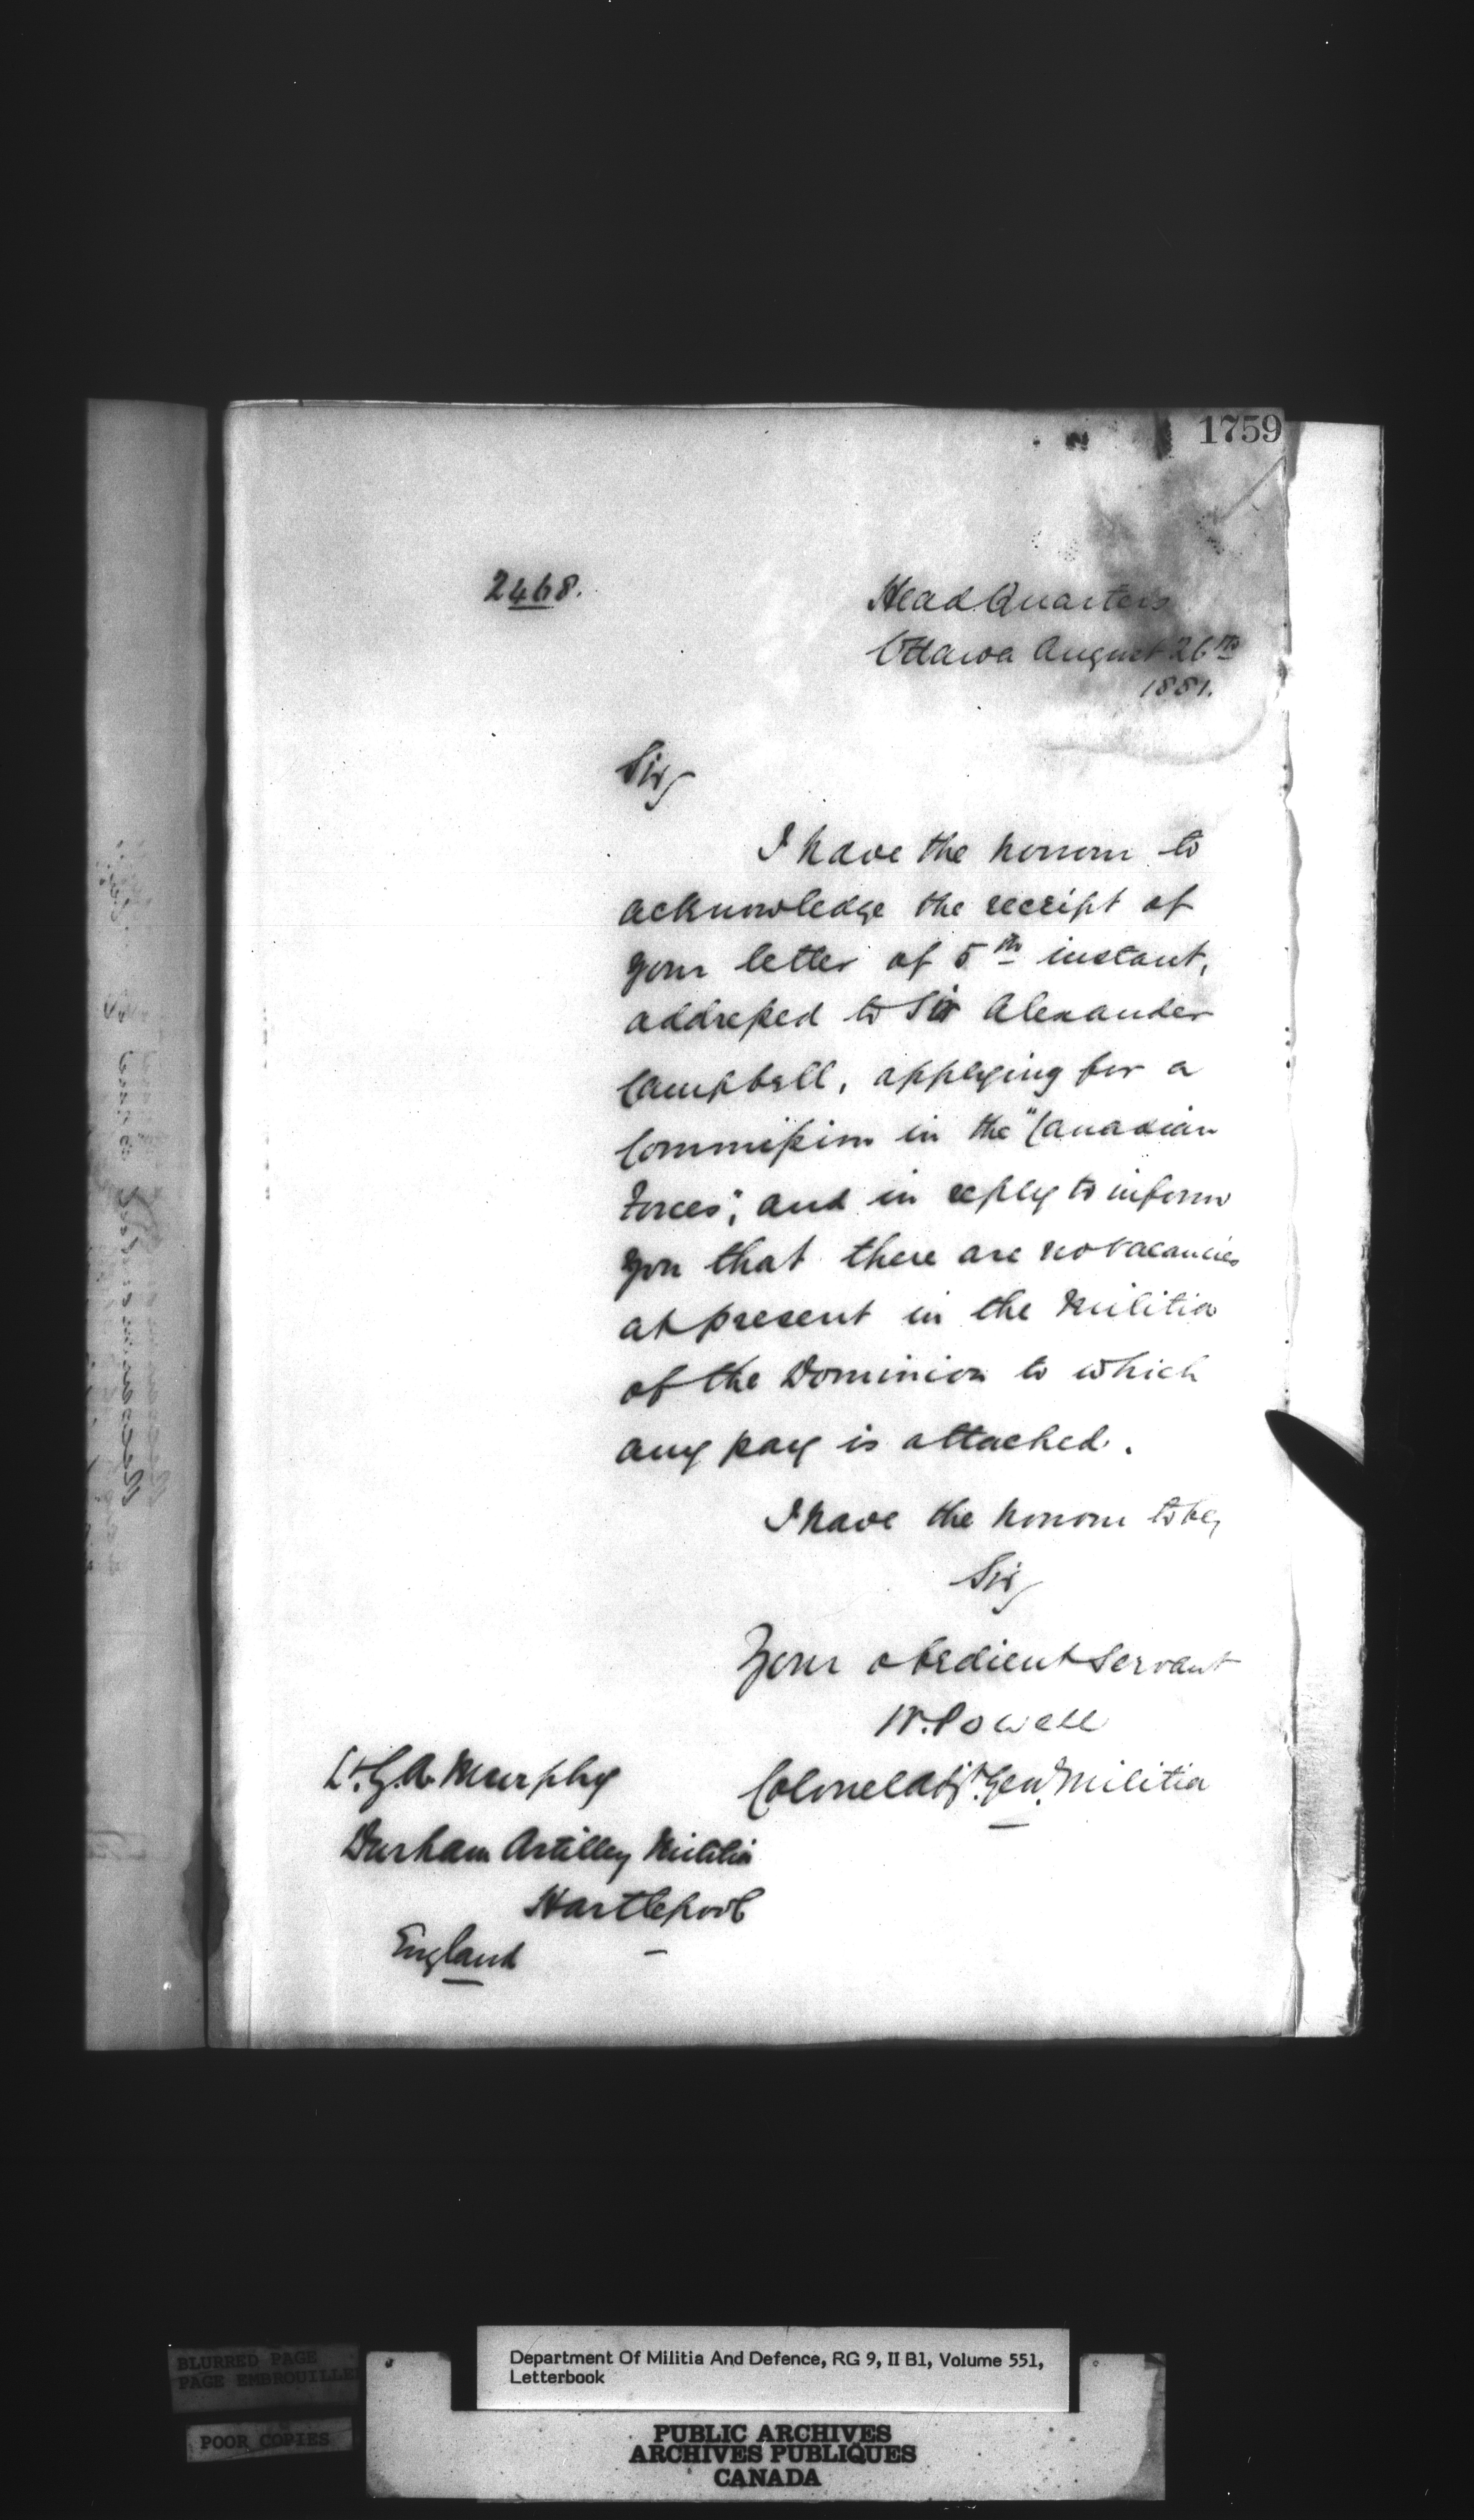 1759
2468.
Head Quarters
Ottawa August 26th
1881.
Sir,
I have the honour to
acknowledge the receipt of
your letter of 5th instant,
addressed to Sir Alexander
Campbell, applying for a
Commission in the "Canadian
Forces", and in reply to inform
you that there are no vacancies
at present in the Militia
of the Dominion to which
any pay is attached.
I have the honour to be,
Sir,
Your obedient Servant
W. Powell
Colonel Adjt. Genl. Militia
Lt. G. A. Murphy
Durham Artillery Militia
Hartlepool
England
Department Of Militia And Defence, RG 9, II B1, Volume 551,
Letterbook
BLURRED PAGE
PAGE EMBROUILLE
POOR COPIES
PUBLIC ARCHIVES
ARCHIVES PUBLIQUES
CANADA